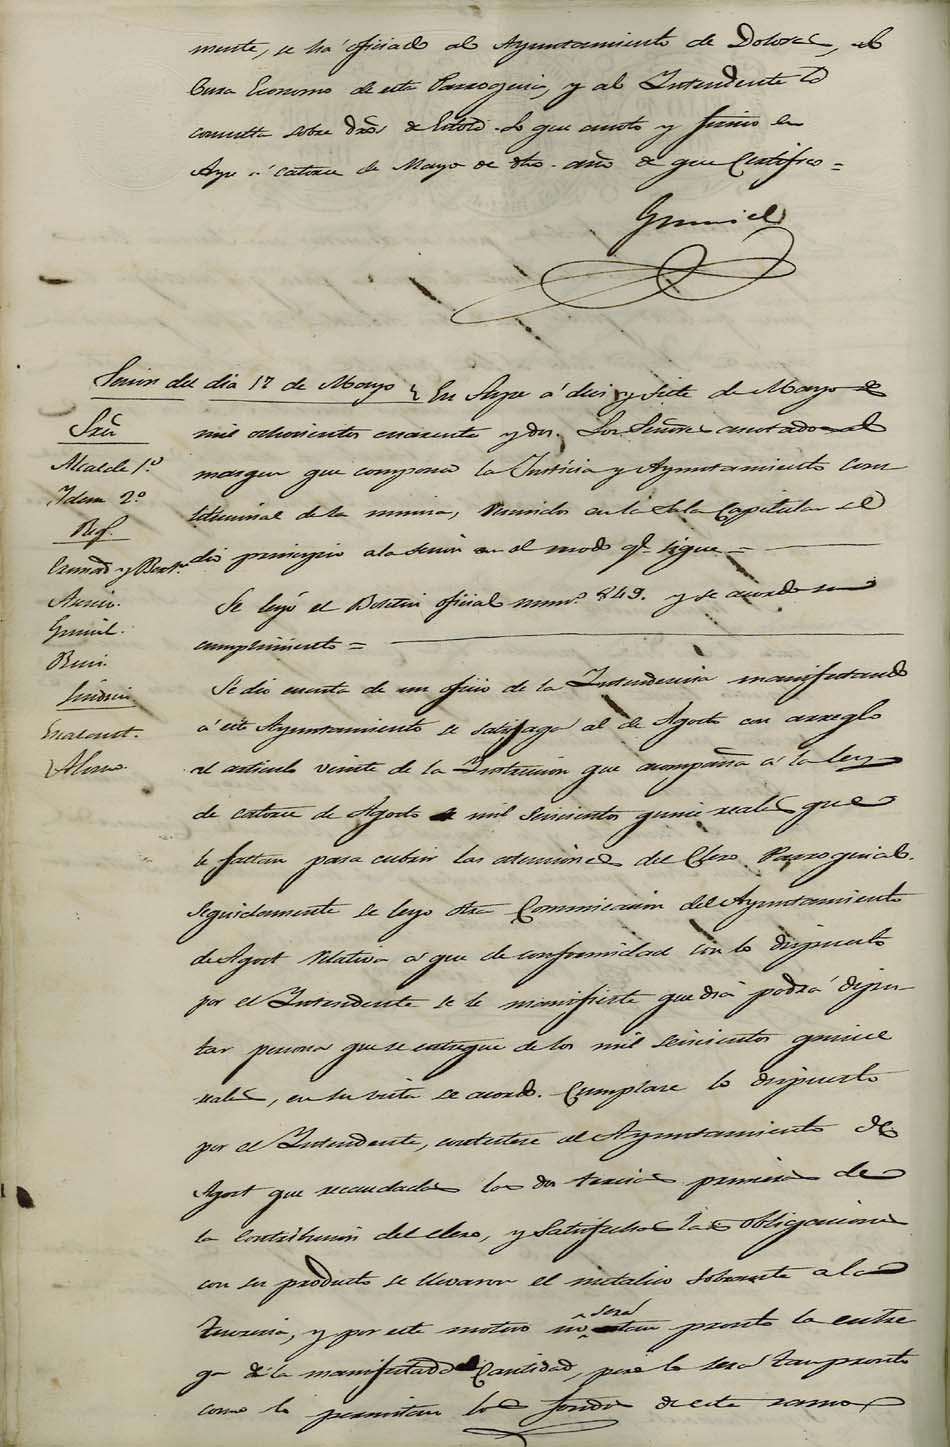 mente, se há oficiado al Ayuntamiento de Dolores, al
Cura Economo de esta Parroquia, y al Intendente la
consulta sobre dros de Estold. Lo que anoto y firmo en
Aspe á catorce de Mayo de dho. año de que Certifico=
Sesion del dia 17 de Mayo
Sres
Alcalde 1.º
Idem 2.º
Reg.
Asencio.
Sindico
Alonso.
En Aspe á diez y siete de Mayo de
mil ochocientos cuarenta y dos. Los Señores anotados al
margen que componen la Justicia y Ayuntamiento Cons
titucional de la misma, Reunidos en la Sala Capitular se
dio principio a la sesion en el modo qe. sigue=
Se leyó el Boletin oficial num.º 849. y se acordo su
cumplimiento=
Se dio cuenta de un oficio de la Intendencia manifestando
á este Ayuntamiento se satisfaga al de Agost con arreglo
al articulo veinte de la Instruccion que acompaña á la ley
de catorce de Agosto mil seiscientos quince reales que
le faltan para cubrir las atenciones del Clero Parroquial.
Seguidamente se leyo otra Comunicacion del Ayuntamiento
de Agost relativa á que de conformidad con lo dispuesto
por el Intendente se le manifieste que dia podrá dipu-
tar persona que se entregue de los mil seiscientos quince
reales, en su vista se acordo. Cumplase lo dispuesto
por el Intendente, contestese al Ayuntamiento de
Agost que recaudados los dos tercios primeros de
la Contribucion del clero, y Satisfechas las obligaciones
con su producto se llevaron el metalico sobrante a la
tesoreria, y por este motivo no será tan pronto la entre
ga de la manifestada Cantidad, pero lo será tan pronto
como lo permitan los fondos de este ramo